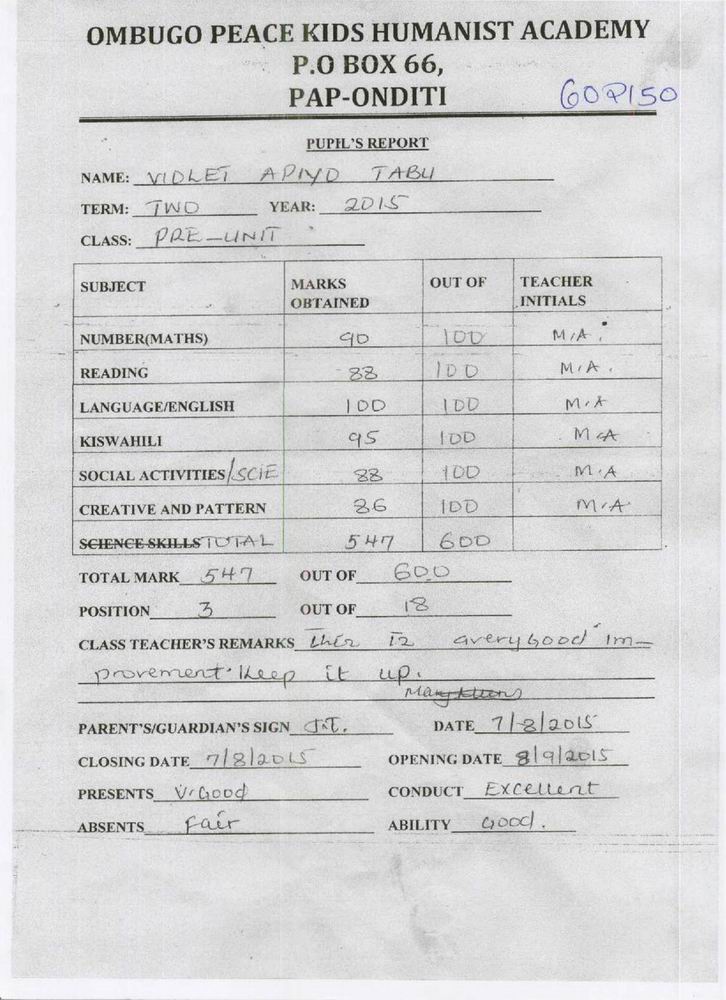 OMBUGO PEACE KIDS HUMANIST ACADEMY
P.O BOX 66,
PAP-ONDITI
GOP150
PUPIL'S REPORT
NAME: VIOLET APIYO TABU
TERM: TWO YEAR: 2015
CLASS: PRE-UNIT
SUBJECT MARKS OBTAINED OUT OF TEACHER INITIALS
NUMBER(MATHS) 90 100 M.A.
READING 88 100 M.A.
LANGUAGE/ENGLISH 100 100 M.A
KISWAHILI 95 100 M.A
SOCIAL ACTIVITIES/SCIE 88 100 M.A
CREATIVE AND PATTERN 86 100 M.A
SCIENCE SKILLS TOTAL 547 600
TOTAL MARK 547 OUT OF 600
POSITION 3 OUT OF 18
CLASS TEACHER'S REMARKS this is a very good im-
provement. Keep it up.
PARENT'S/GUARDIAN'S SIGN J.T. DATE 7/8/2015
CLOSING DATE 7/8/2015 OPENING DATE 8/9/2015
PRESENTS V.Good CONDUCT Excellent
ABSENTS Fair ABILITY Good.